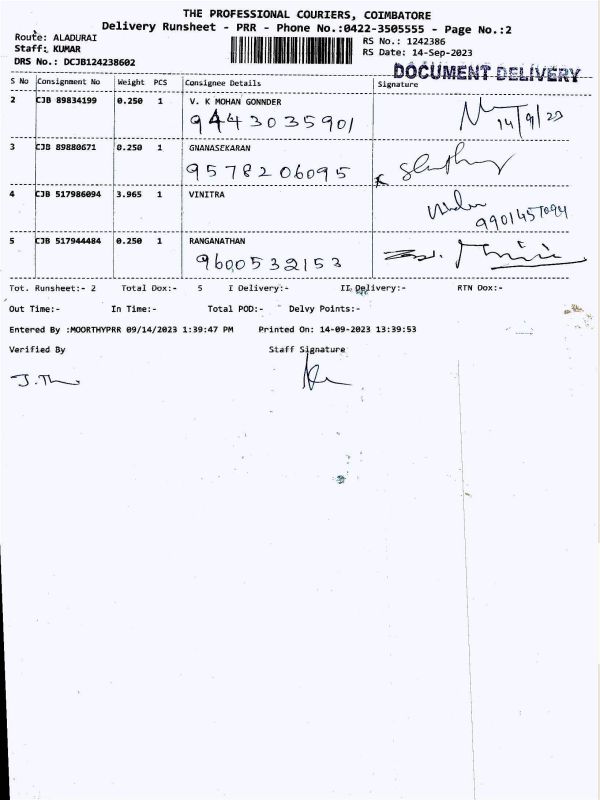 THE PROFESSIONAL COURIERS, COIMBATORE
Delivery Runsheet - PRR - Phone No.:0422-3505555 - Page No.:2
Route: ALADURAI
RS No.: 1242386
Staff: KUMAR
RS Date: 14-Sep-2023
DRS No.: DCJB124238602
DOCUMENT DELIVERY
S No Consignment No Weight PCS Consignee Details Signature
2 CJB 89834199 0.250 1 V. K MOHAN GONNDER
9443035901 14/9/23
3 CJB 89880671 0.250 1 GNANASEKARAN
9578206095
4 CJB 517986094 3.965 1 VINITRA
9901457094
5 CJB 517944484 0.250 1 RANGANATHAN
9600532153
Tot. Runsheet:- 2 Total Dox:- 5 I Delivery:- II Delivery:- RTN Dox:-
Out Time:- In Time:- Total POD:- Delvy Points:-
Entered By :MOORTHYPRR 09/14/2023 1:39:47 PM Printed On: 14-09-2023 13:39:53
Verified By Staff Signature